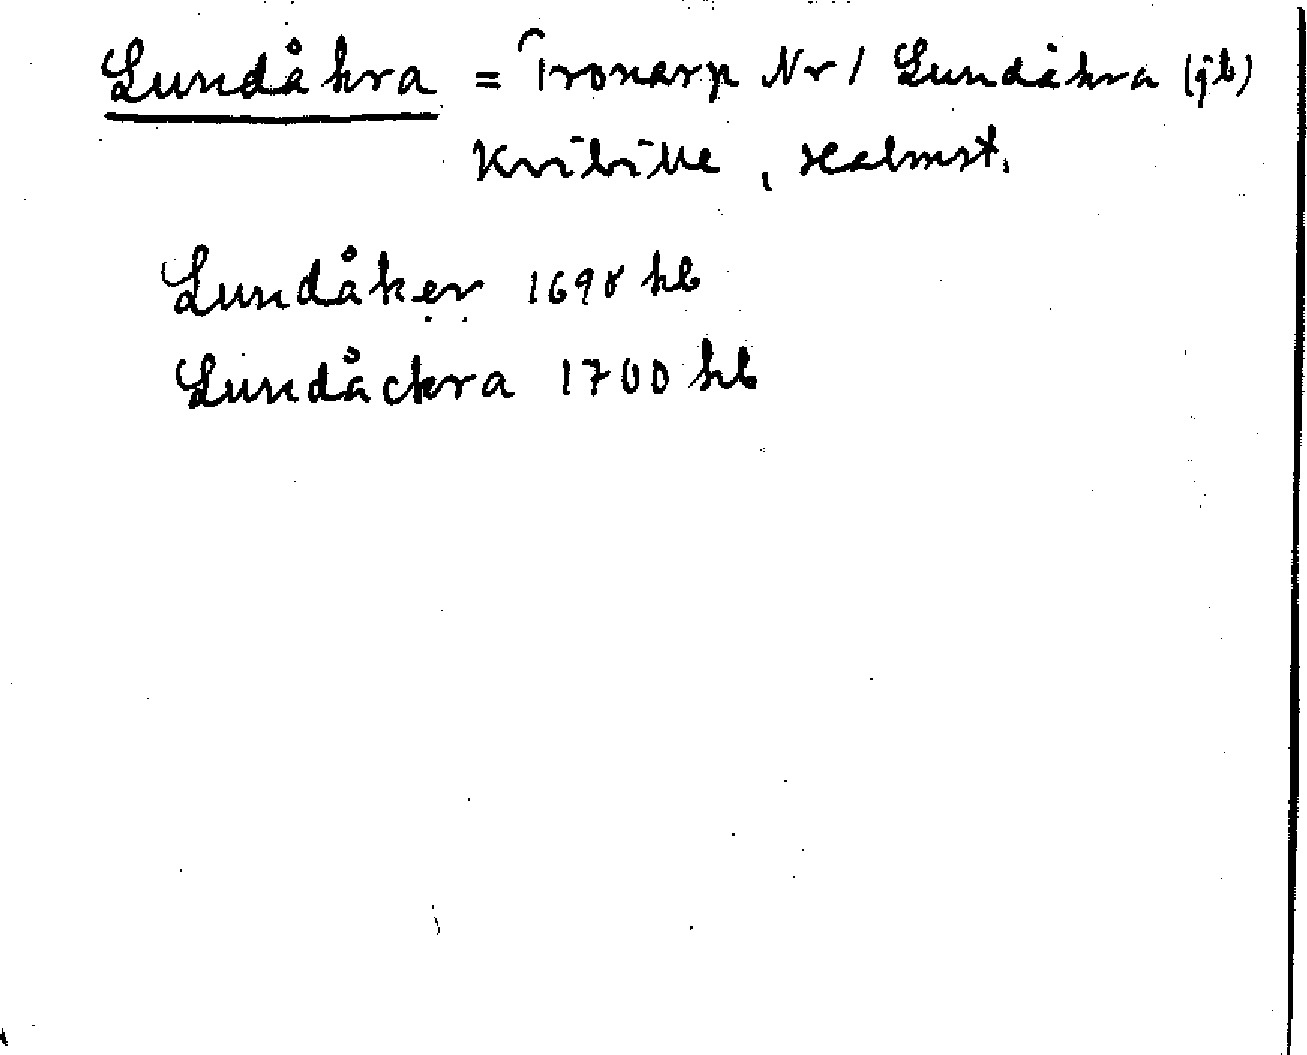 Lundåkra = Tronarp Nr 1 Lundåkra (jb)
Kvibille, Halmst.
Lundåker 1698 hb
Lundåckra 1700 hb